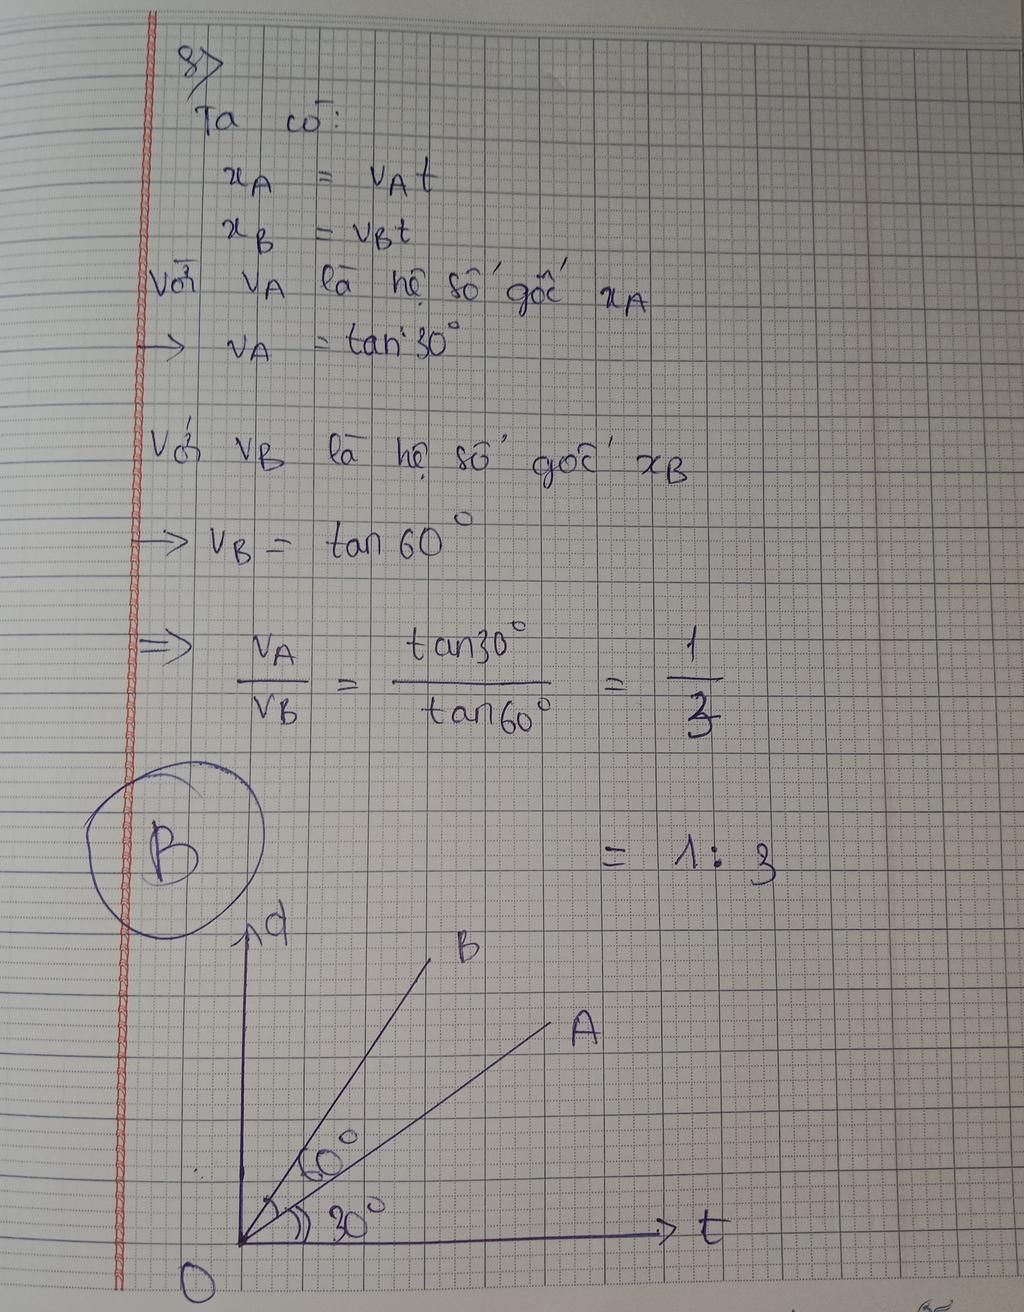 8>
Ta có:
xA = vAt
xB = vBt
Với vA là hệ số gốc xA
→ vA = tan 30°
Với vB là hệ số gốc xB
→ vB = tan 60°
⇒ vA/vB = tan30°/tan60° = 1/3
B
= 1: 3
d
B
A
60°
30°
t
O